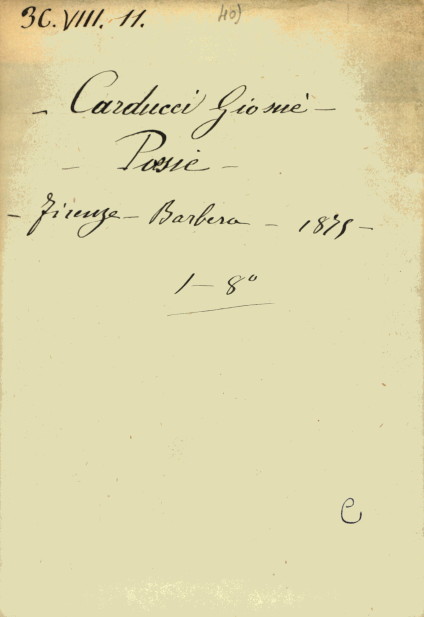 3C.VIII.11. 40)
- Carducci Giosuè -
- Poesie -
- Firenze - Barbera - 1875 -
1 - 8º
C